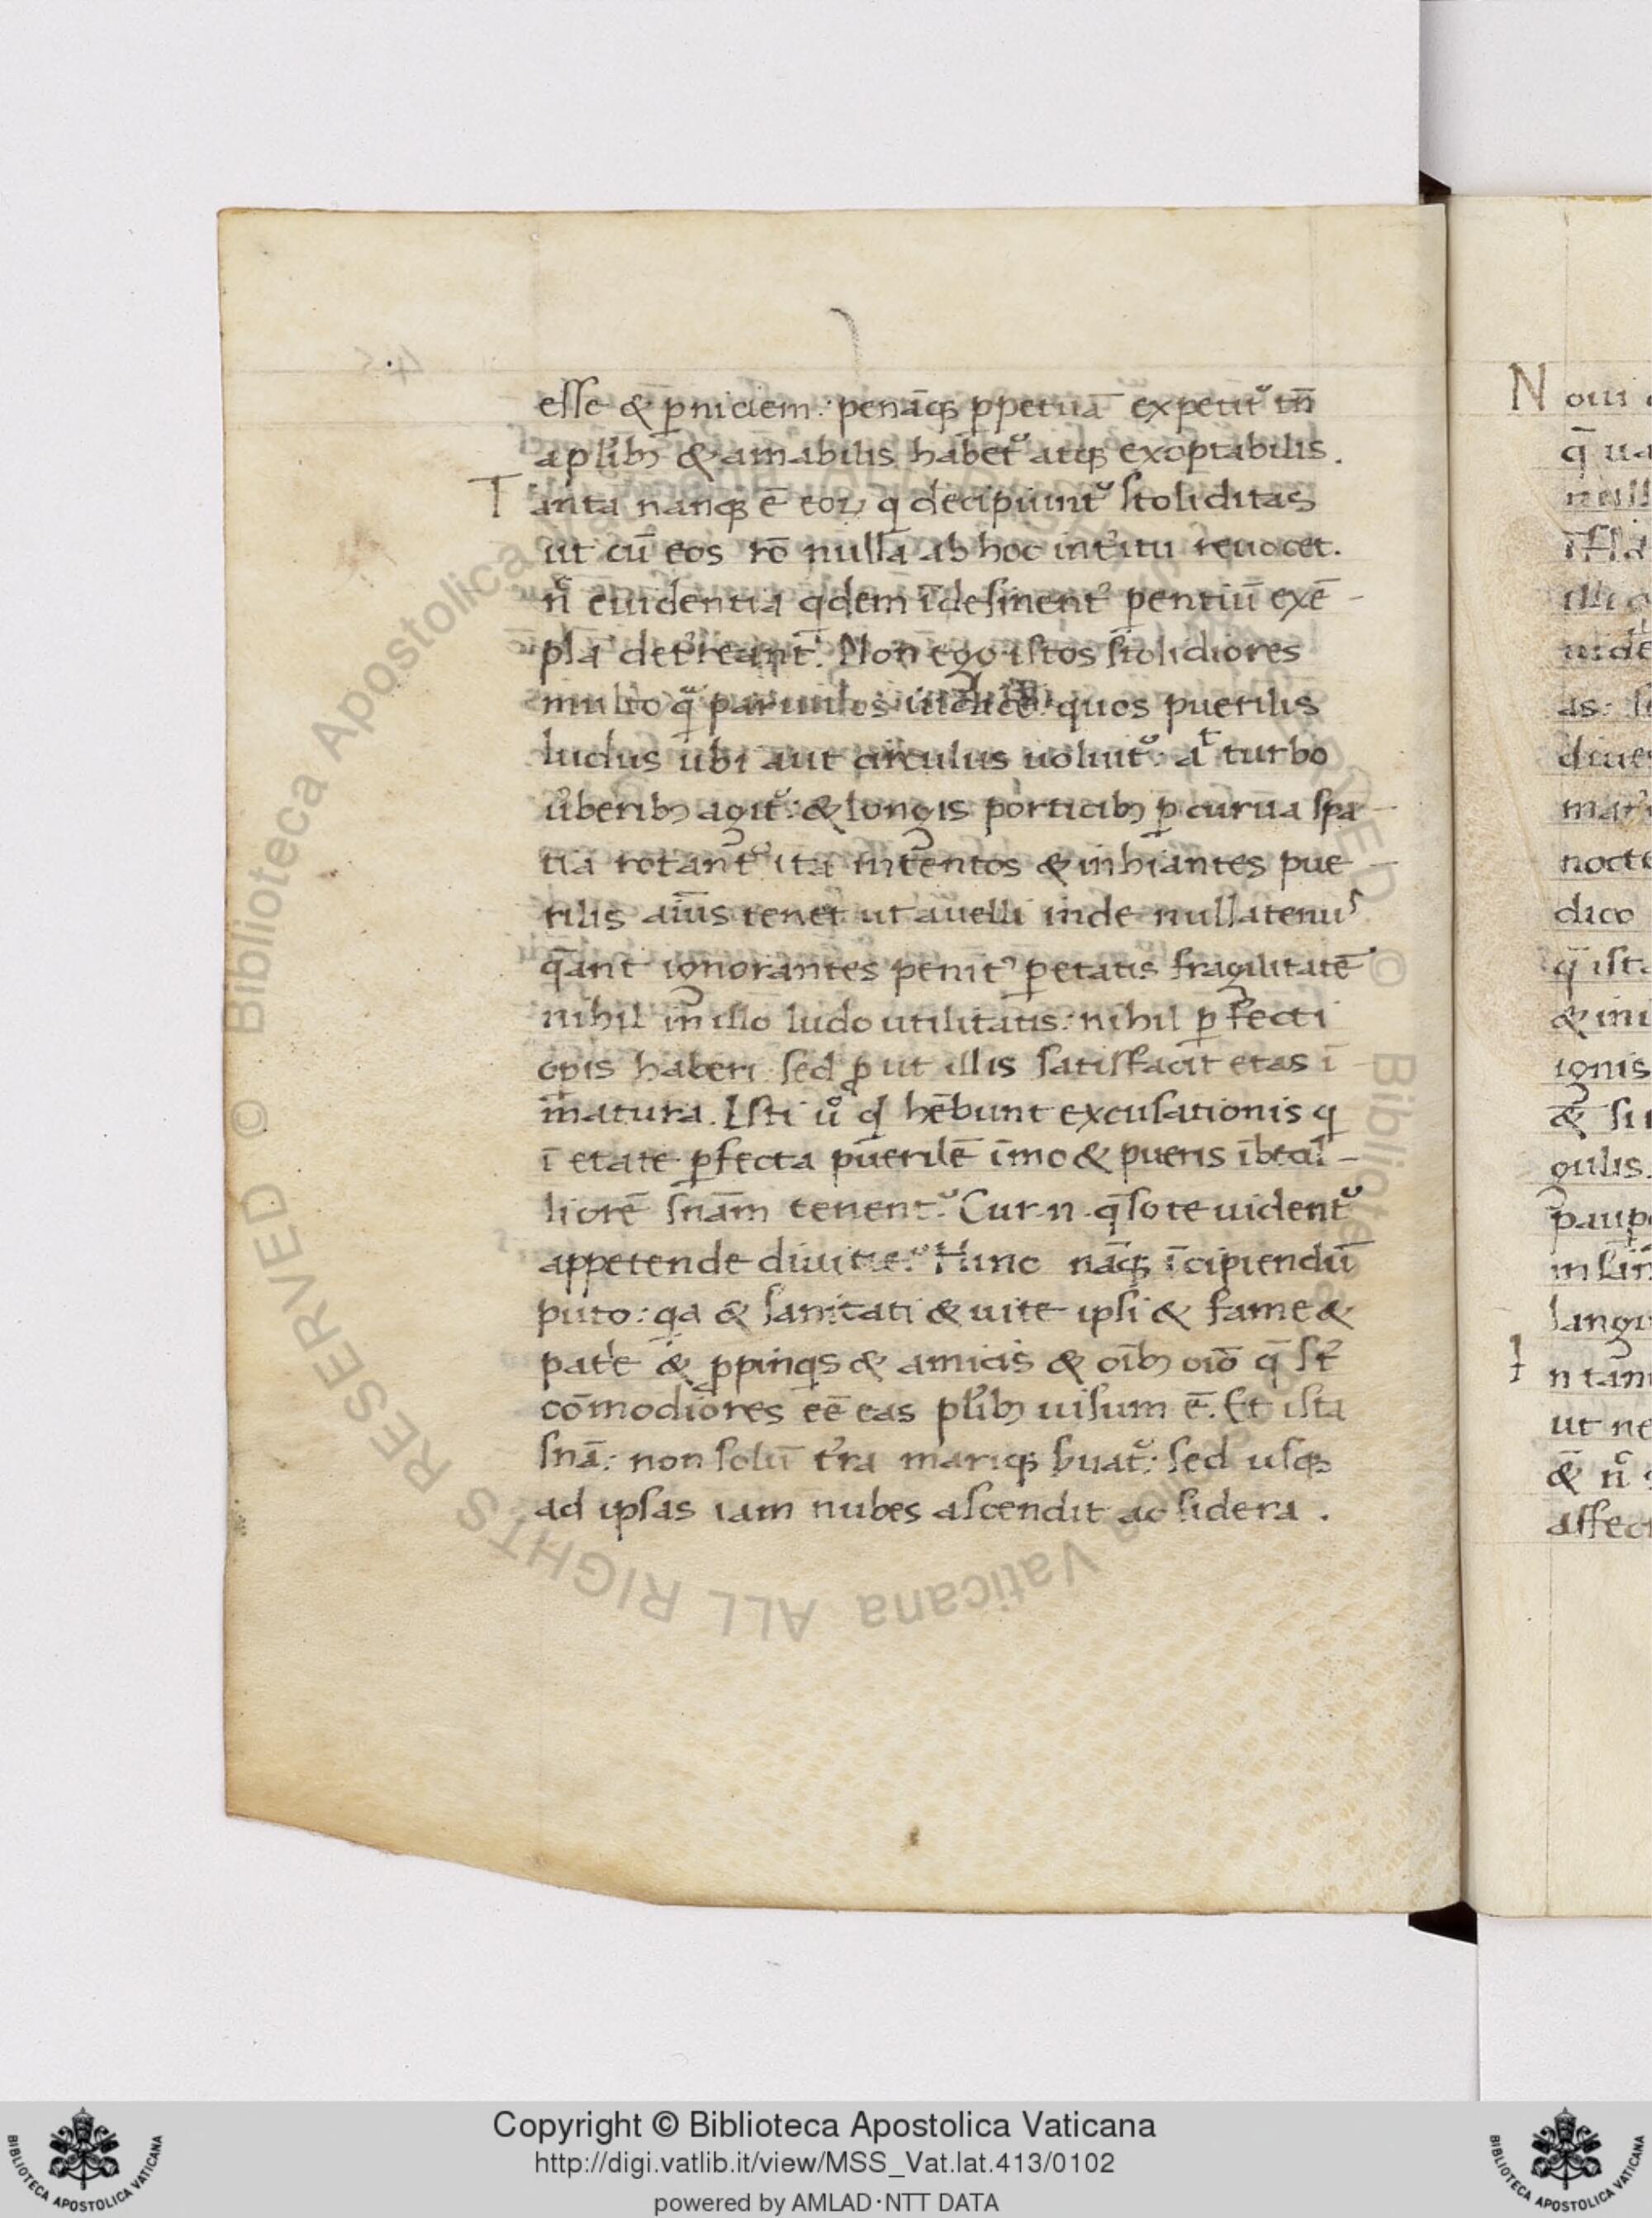 esse & p̱niciem: penāqꝫ p̱petuā expetit᷑ tn̄
a plibꝫ & amabilis habet᷑ atqꝫ exoptabilis.
Tanta nanqꝫ ē eoꝝ q decipiunt᷑ stoliditas
ut cū eos rō nulla ab hoc int̓itu reuocet.
n̄ euidentia qdem īdesinent̓ ꝑentiū exē-
pla det̓reant. Non ego istos stolidiores
multo q̄ paruulos quos puerilis
ludus ubi aut circulus uoluit᷑: at turbo
u̓beribꝫ agit᷑: & longis porticibꝫ ꝑ curua spa-
tia rotant᷑ ita intentos & inhiantes pue-
rilis aīus tenet ut auelli inde nullatenus
q̄ant ignorantes penit᷒ ꝑ etatis fragilitatē
nihil in illo ludo utilitatis: nihil ꝑfecti
opis haberi: sed ꝓut illis satisfacit etas ī-
matura. Isti u̓o qd hēbunt excusationis q
ī etate ꝑfecta puerilē īmo & pueris ībecil-
liorē sn̄am tenent᷑. Cur.n. q̄so te uident᷑
appetende diuitie? Hinc nāqꝫ īcipiendū
puto: qa & sanitati & uite ipsi & fame &
pat̓e & ꝓpinqs & amicis & oībꝫ oīo q̄ st̄
cōmodiores eē eas pl̓ibꝫ uisum ē. Et ista
sn̄a: non solū t̓ra mariqꝫ s̓uat᷑: sed usqꝫ
ad ipsas iam nubes ascendit ac sidera.
N oui
q̄ ua
null
illi
as: li
diues
mat̓
nocte
dico
q̄ ista
& ini
ignis
& si
gulis.
paup
langu
I n tam
ut ne
& n̄
affect
© Biblioteca Apostolica Vaticana ALL RIGHTS RESERVED
BIBLIOTECA APOSTOLICA VATICANA
Copyright © Biblioteca Apostolica Vaticana
http://digi.vatlib.it/view/MSS_Vat.lat.413/0102
powered by AMLAD·NTT DATA
BIBLIOTECA APOSTOLICA VATICANA